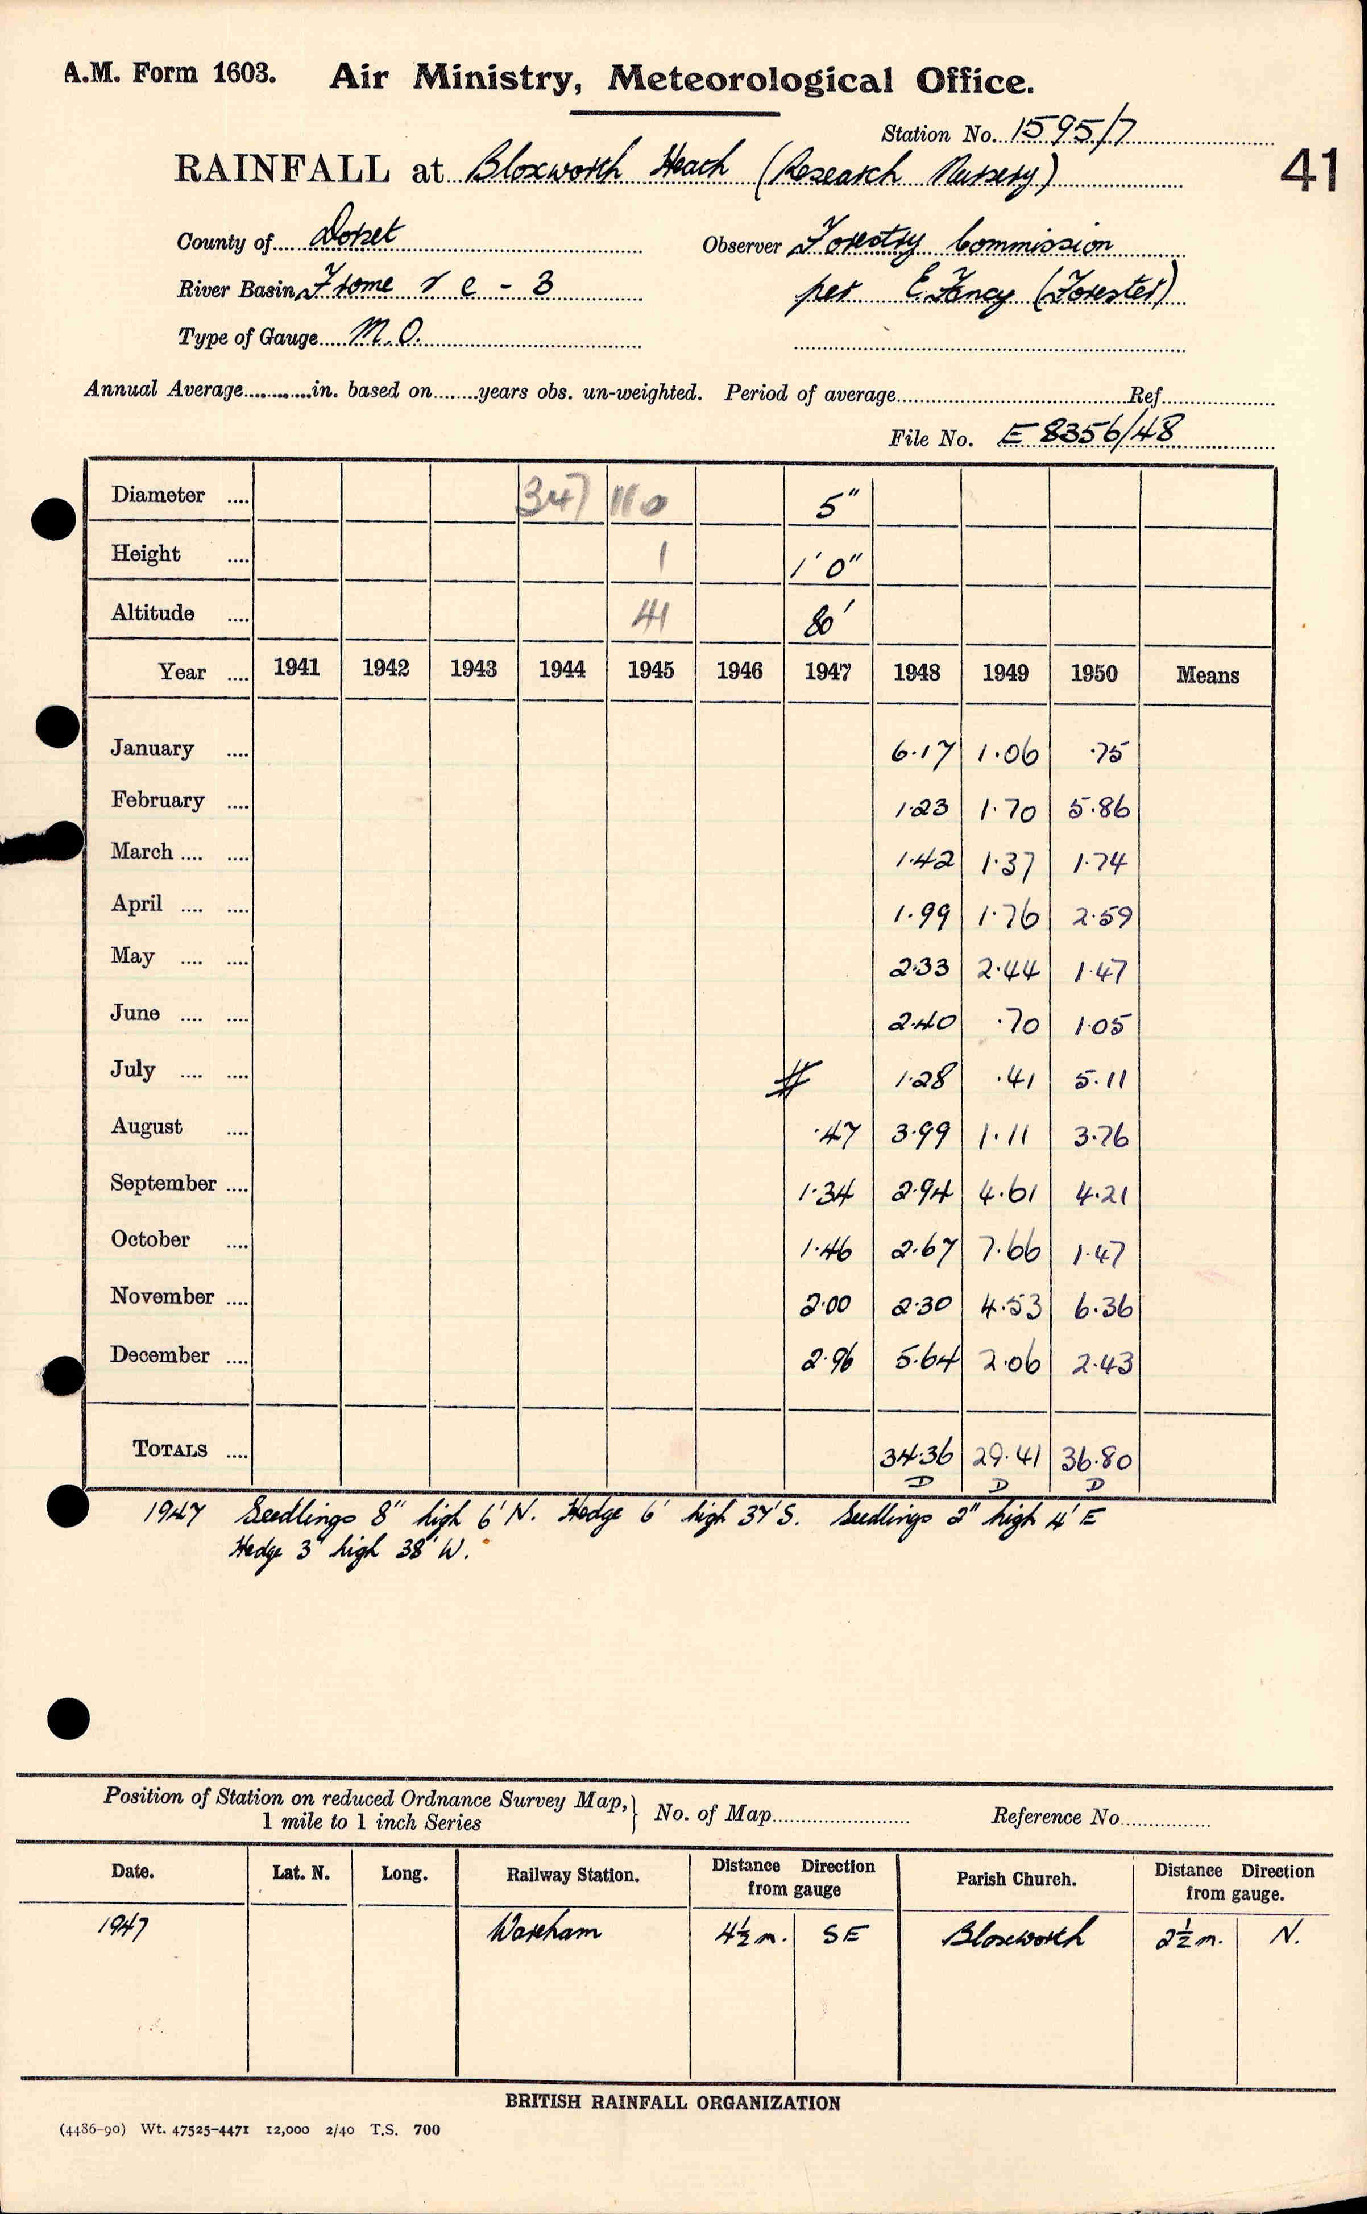 A.M. Form 1603. Air Ministry, Meteorological Office.
Station No. 1595/7
RAINFALL at Bloxworth Heath (Research Nursery)
41
County of Dorset
Observer Forestry Commission
River Basin Frome & c - 3
per E. Fancy (Forester)
Type of Gauge M.O.
Annual Average............in. based on........years obs. un-weighted. Period of average........ Ref........
File No. E 8356/48
Diameter .... 347 110 5"
Height .... 1 1' 0"
Altitude .... 41 80'
Year .... 1941 1942 1943 1944 1945 1946 1947 1948 1949 1950 Means
January .... 6.17 1.06 .75
February .... 1.23 1.70 5.86
March .... .... 1.42 1.37 1.74
April .... .... 1.99 1.76 2.59
May .... .... 2.33 2.44 1.47
June .... .... 2.40 .70 1.05
July .... .... # 1.28 .41 5.11
August .... .47 3.99 1.11 3.76
September .... 1.34 2.94 4.61 4.21
October .... 1.46 2.67 7.66 1.47
November .... 2.00 2.30 4.53 6.36
December .... 2.96 5.64 2.06 2.43
TOTALS .... 34.36 29.41 36.80
D D D
1947 Seedlings 8" high 6' N. Hedge 6' high 37' S. Seedlings 2" high 4' E
Hedge 3' high 38' W.
Position of Station on reduced Ordnance Survey Map, 1 mile to 1 inch Series } No. of Map........ Reference No........
Date. Lat. N. Long. Railway Station. Distance Direction from gauge Parish Church. Distance Direction from gauge.
1947 Wareham 4½ m. SE Bloxworth 2½ m. N.
BRITISH RAINFALL ORGANIZATION
(4486-90) Wt. 47525-4471 12,000 2/40 T.S. 700